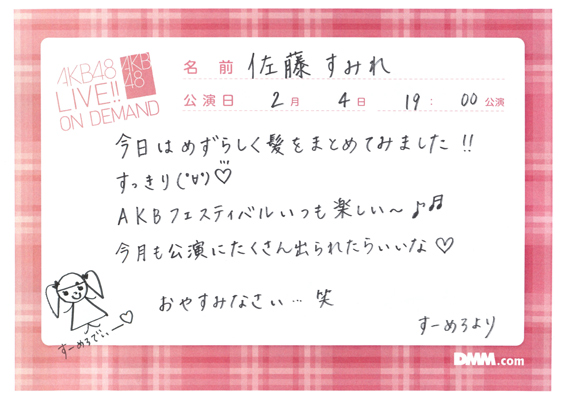 AKB48
LIVE!!
ON DEMAND
AKB
48
名前 佐藤すみれ
公演日 2月 4日 19: 00公演
今日はめずらしく髪をまとめてみました!!
すっきり(°∀°)♡
AKBフェスティバルいつも楽しい〜♪♬
今月も公演にたくさん出られたらいいな♡
おやすみなさい…笑
すーめろでぃー♡
すーめろより
DMM.com